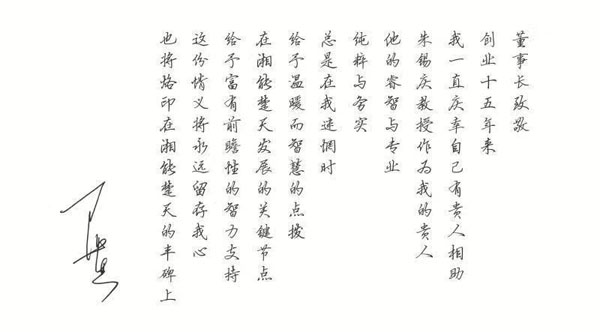 董事长致敬
创业十五年来
我一直庆幸自己有贵人相助
朱锡庆教授作为我的贵人
他的睿智与专业
纯粹与务实
总是在我迷惘时
给予温暖而智慧的点拨
在湘能楚天发展的关键节点
给予富有前瞻性的智力支持
这份情义将永远留存我心
也将烙印在湘能楚天的丰碑上